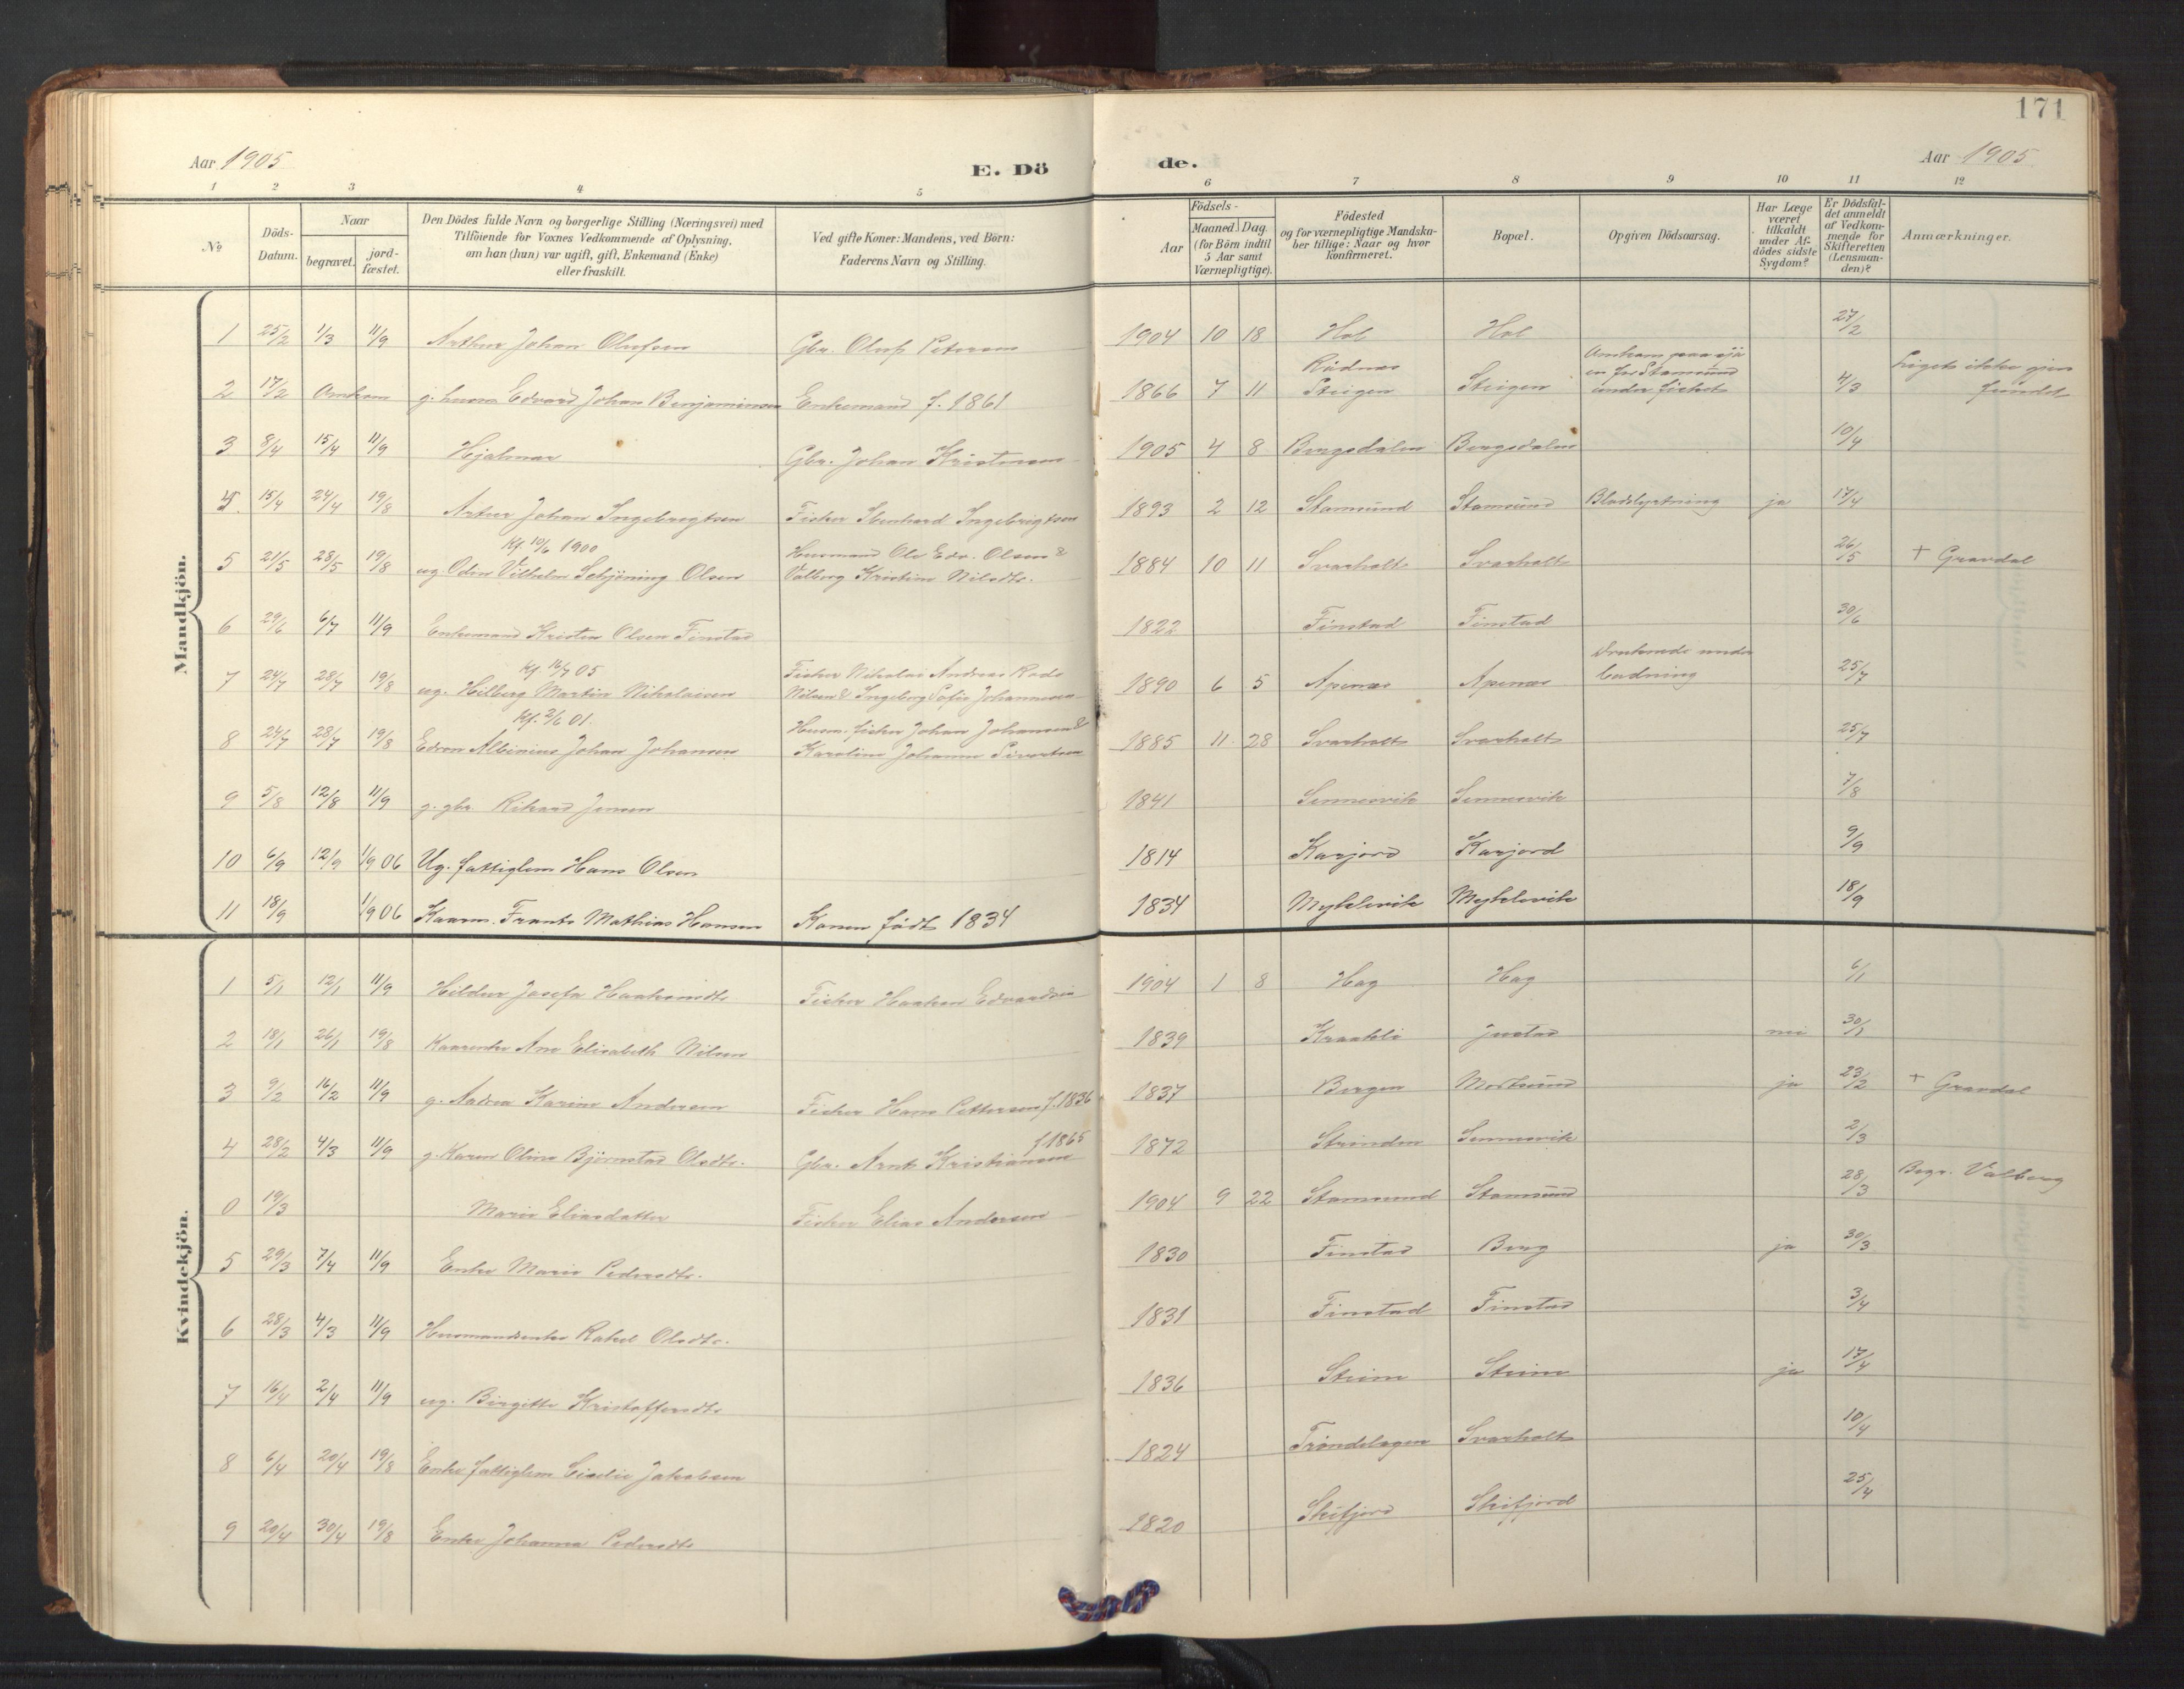 171
Aar 1905
E. Dö
de.
Aar 1905
1 2 3 4 5 6 7 8 9 10 11 12
No
Döds-Datum.
Naar
begravet.
jord-fæstet.
Den Dödes fulde Navn og borgerlige Stilling (Næringsvei) med
Tilföiende for Voxnes Vedkommende af Oplysning,
om han (hun) var ugift, gift, Enkemand (Enke)
eller fraskilt.
Ved gifte Koner: Mandens, ved Börn:
Faderens Navn og Stilling.
Födsels-
Aar
Maaned
Dag
(for Börn indtil
5 Aar samt
Værnepligtige).
Födested
og for værnepligtige Mandska-
ber tillige: Naar og hvor
konfirmeret.
Bopæl.
Opgiven Dödsaarsag.
Har Læge
været
tilkaldt
under Af-
dödes sidste
Sygdom?
Er Dödsfal-
det anmeldt
af Vedkom-
mende for
Skifteretten
(Lensman-
den)?
Anmærkninger.
Mandkjön.
1 25/2 1/3 11/9 Arthur Johan Olufsen Gbr. Oluf Petersen 1904 10 18 Hol Hol 27/2
2 17/2 Omkom g. husm Edvard Johan Benjaminsen Enkemand f. 1861 1866 7 11 Steigen Steigen Omkom paa sjø
en for Stamsund
under fisket 4/3 Liget ikke gjen
fundet
3 8/4 15/4 11/9 Hjalmar Gbr. Johan Kristensen 1905 4 8 Bergsdalen Bergsdalen 10/4
4 15/4 24/4 19/8 Artur Johan Ingebrigtsen Fisker Ingebrigtsen 1893 2 12 Stamsund Stamsund ja 17/4
Kf. 10/6 1900 Husmand Ole Edv. Olsen &
5 21/5 28/5 19/8 ug. Odin Vilhelm Schjöning Olsen Valborg Kristine Nilsdtr. 1884 10 11 Svarholt Svarholt 26/5 + Gravdal
6 29/6 6/7 11/9 Enkemand Kristen Olsen Finstad 1822 Finstad Finstad 30/6
Kf. 16/7 05 Fisker Nikolai Andreas
7 24/7 28/7 19/8 ug. Hilberg Martin Nikolaisen Nilsen & Ingeborg Sofie Johannesen 1890 6 5 Apenæs Apenæs Druknede under
badning 25/7
Kf. 2/6 01. Husm. fisker Johan Johansen &
8 24/7 28/7 19/8 Edvon Albinius Johan Johansen Karoline Johanna Sivertsen 1885 11 28 Svarholt Svarholt 25/7
9 5/8 12/8 11/9 g. gbr. Rikard Jensen 1841 Sennesvik Sennesvik 7/8
10 6/9 12/9 1/9 06 Ug. fattiglem Hans Olsen 1814 Kanjord Kanjord 9/9
11 18/9 1/9 06 Kaarm. Frants Mathias Hansen Konen født 1834 1834 Myklevik Myklevik 18/9
Kvindekjön.
1 5/1 12/1 11/9 Hildur Josefa Haakonsdtr Fisker Haakon Edvardsen 1904 1 8 Hag Hag 6/1
2 18/1 26/1 19/8 Kaarenke Ane Elisabeth Nilsen 1839 Justad nei 30/1
3 9/2 16/2 11/9 g. Andrea Karine Andersen Fisker Hans Pettersen f. 1836 1837 Bergen Mortsund ja 23/2 + Gravdal
f. 1865
4 28/2 4/3 11/9 g. Karen Olina Bjørnstad Olsdtr. Gbr. Arnt Kristiansen 1872 Stranden Sennesvik 2/3
0 19/3 Marie Eliasdatter Fisker Elias Andersen 1904 9 22 Stamsund Stamsund 28/3 Begr. Valberg
5 29/3 7/4 11/9 Enke Marie Pedersdtr. 1830 Finstad Berg ja 30/3
6 28/3 4/3 11/9 Husmandsenke Rakel Olsdtr. 1831 Finstad Finstad 3/4
7 16/4 2/4 11/9 ug. Birgitte Kristoffersdtr 1836 Steine Steine ja 17/4
8 6/4 20/4 19/8 Enke fattiglem Cicelie Jakobsen 1824 Trøndelagen Svarholt 10/4
9 20/4 30/4 19/8 Enke Johanna Pedersdtr 1820 Skifjord Skifjord 25/4